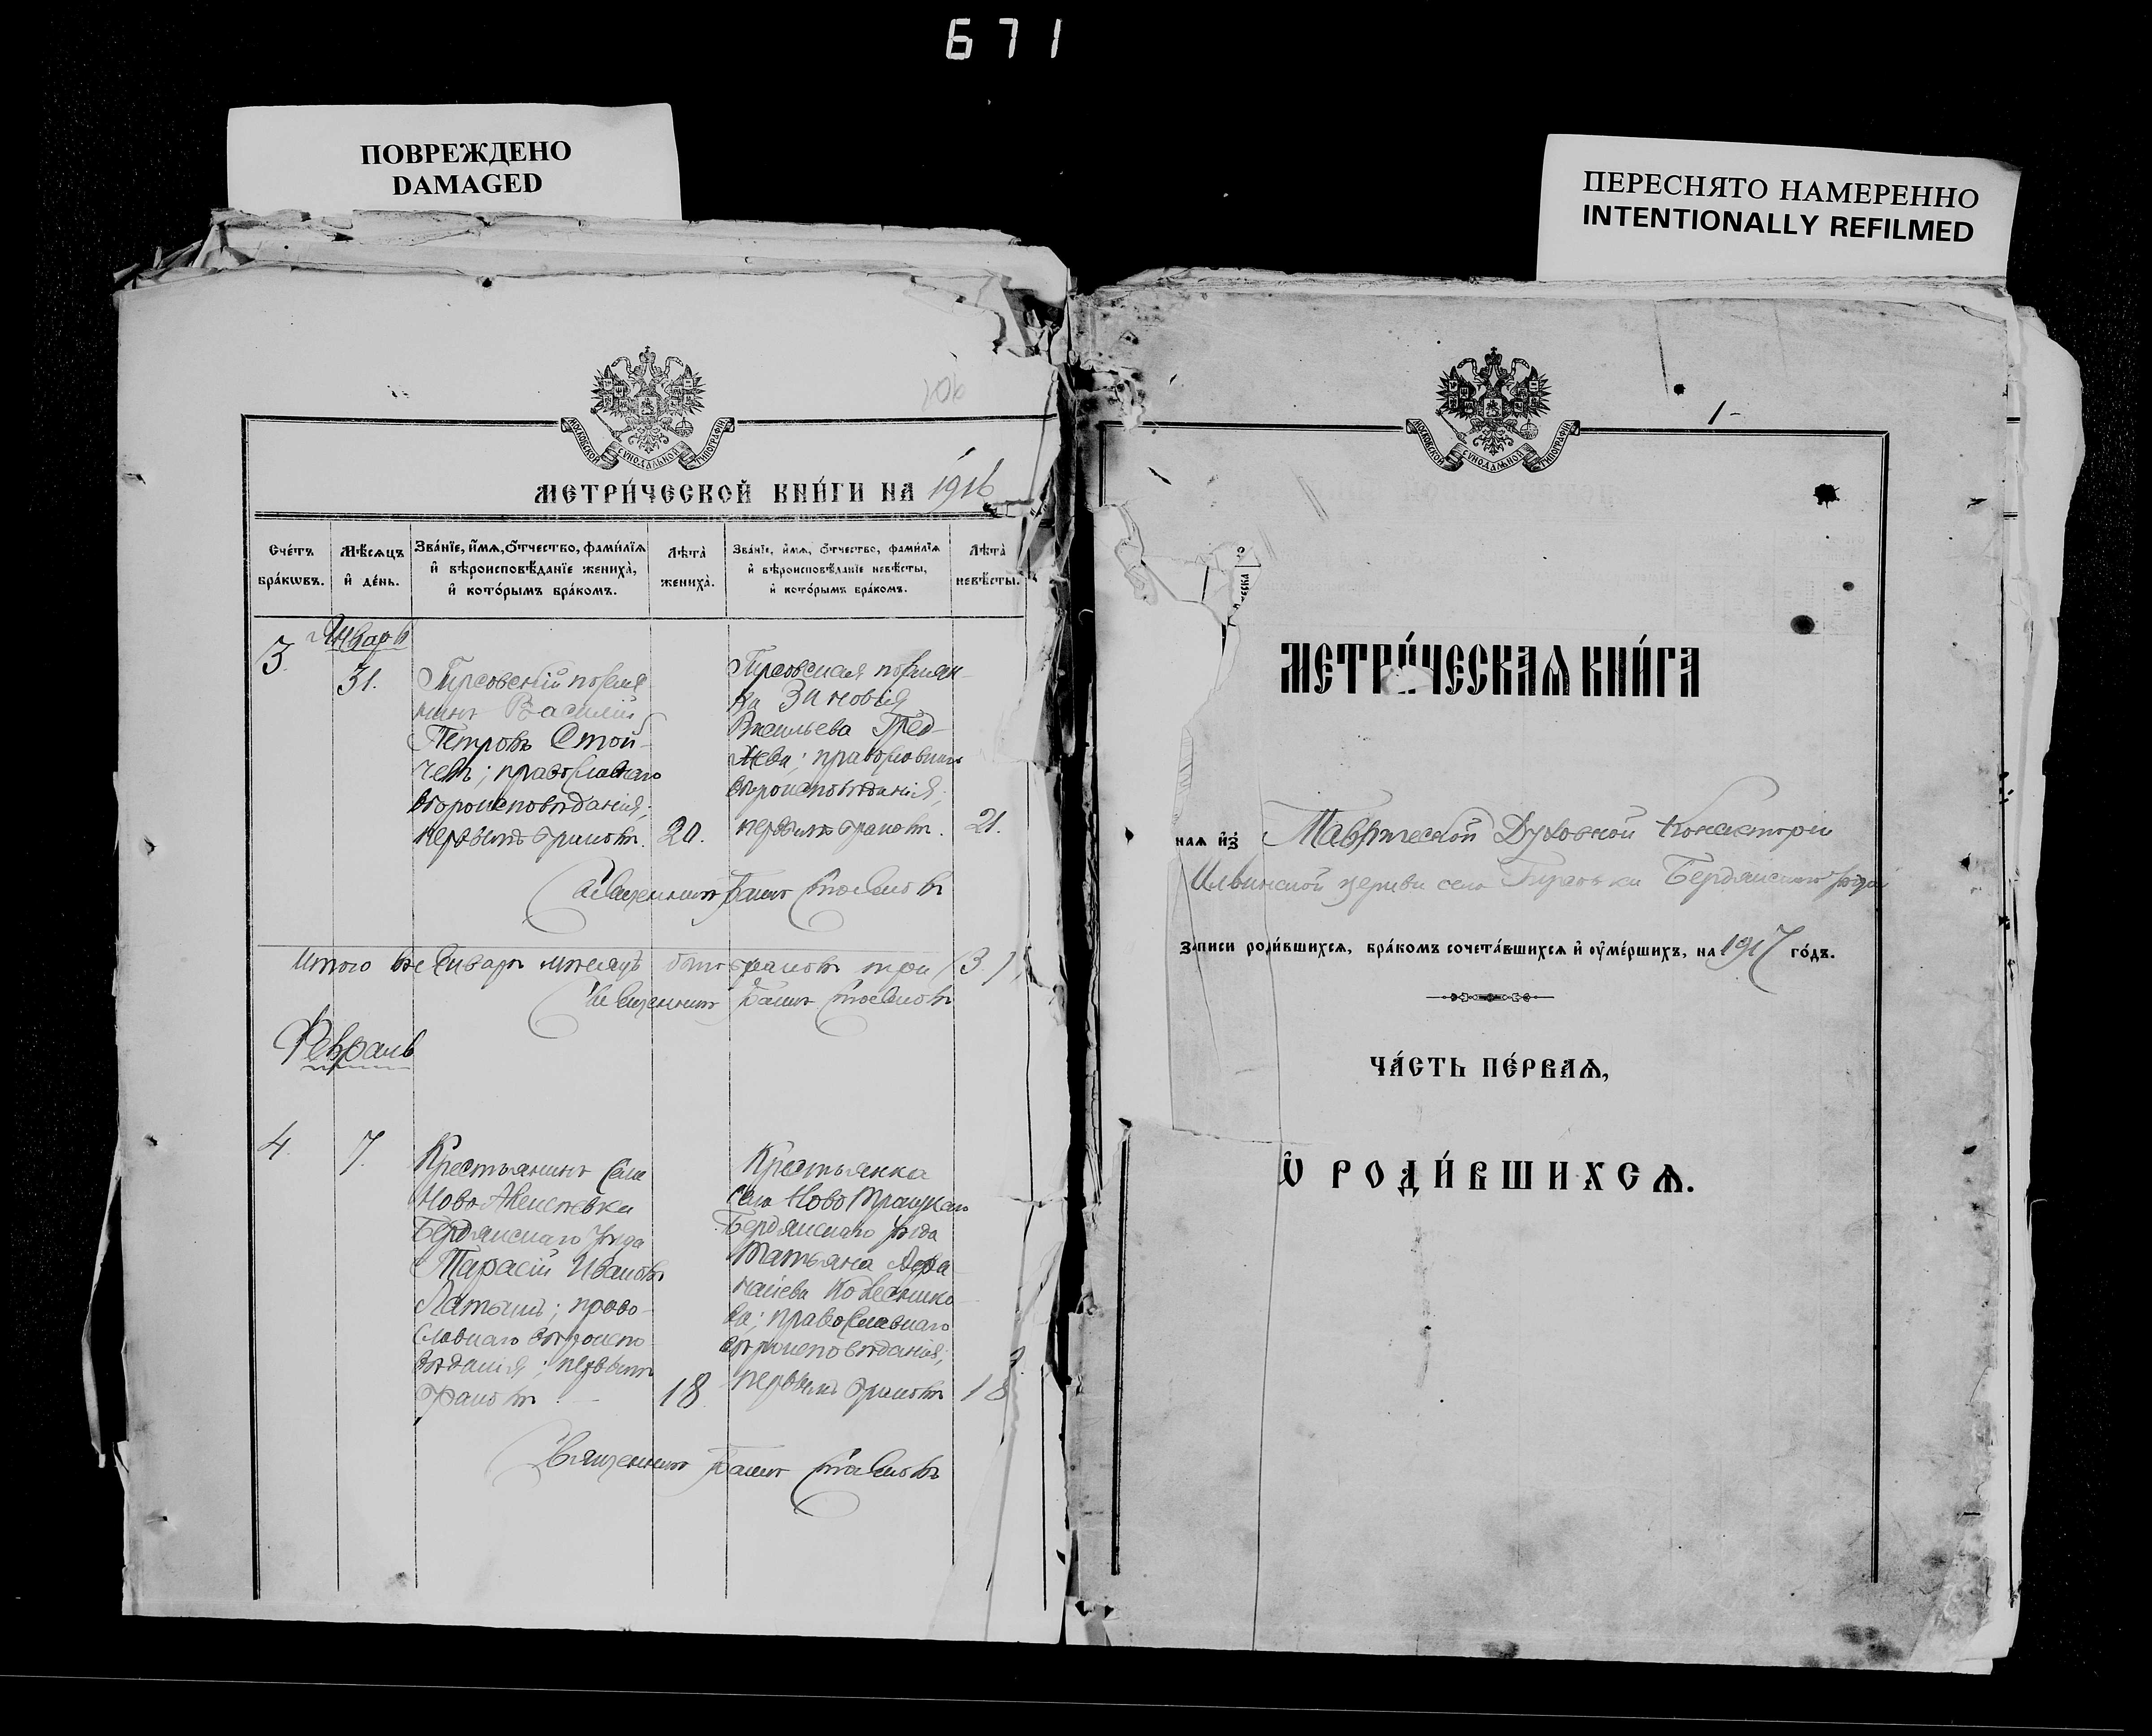 671
ПОВРЕЖДЕНО
DAMAGED
ПЕРЕСНЯТО НАМЕРЕННО
INTENTIONALLY REFILMED
МОСКОВСКОЙ СѴНОДАЛЬНОЙ ТИПОГРАФІИ
МЕТРИ́ЧЕСКОЙ КНИ́ГИ НА 1916
Счéтъ бра́кѡвъ.
Мѣ́сѧцъ и҆ де́нь.
Зва́нїе, и҆́мѧ, ѻ҆́тчество, фами́лїѧ
и҆ вѣроисповѣ́данїе жениха̀,
и҆ кото́рымъ бра́комъ.
Лѣта̀ жениха̀.
Зва́нїе, и҆́мѧ, ѻ҆́тчество, фами́лїѧ
и҆ вѣроисповѣ́данїе невѣ́сты,
и҆ кото́рымъ бра́комъ.
Лѣта̀ невѣ́сты.
Январь
3.
31.
Гирсовскій поселя
нинъ Василій
Петровъ Стой-
чевъ; православнаго
вѣроисповѣданія;
первымъ бракомъ.
20.
Гирсовская поселян-
ка Зиновія
Васильева
православнаго
вѣроисповѣданія;
первымъ бракомъ.
21.
Священникъ
Итого въ Январѣ мѣсяцѣ было браковъ три (3)
Священникъ
Февраль
4.
7.
Крестьянинъ села
Ново Алексѣевки
Бердянскаго уѣзда
Тарасій Ивановъ
право-
славнаго вѣроиспо
вѣданія; первымъ
бракомъ.
18
Крестьянка
села Ново Троицкаго
Бердянскаго уѣзда
Татьяна
Колеснико
ва; православнаго
вѣроисповѣданія;
первымъ бракомъ
18
Священникъ
1-
МОСКОВСКОЙ СѴНОДАЛЬНОЙ ТИПОГРАФІИ
МЕТРИ́ЧЕСКАѦ КНИ́ГА
наѧ и҆з̾ Таврической Духовной Консисторіи
Ильинской церкви села Гирсовки Бердянскаго уѣзда
записи роди́вшихсѧ, бра́комъ сочета́вшихсѧ и҆ ѹ҆ме́ршихъ, на 1917 го́дъ.
ЧА́СТЬ ПЕ́РВАѦ,
Ѽ РОДИ́ВШИХСѦ.